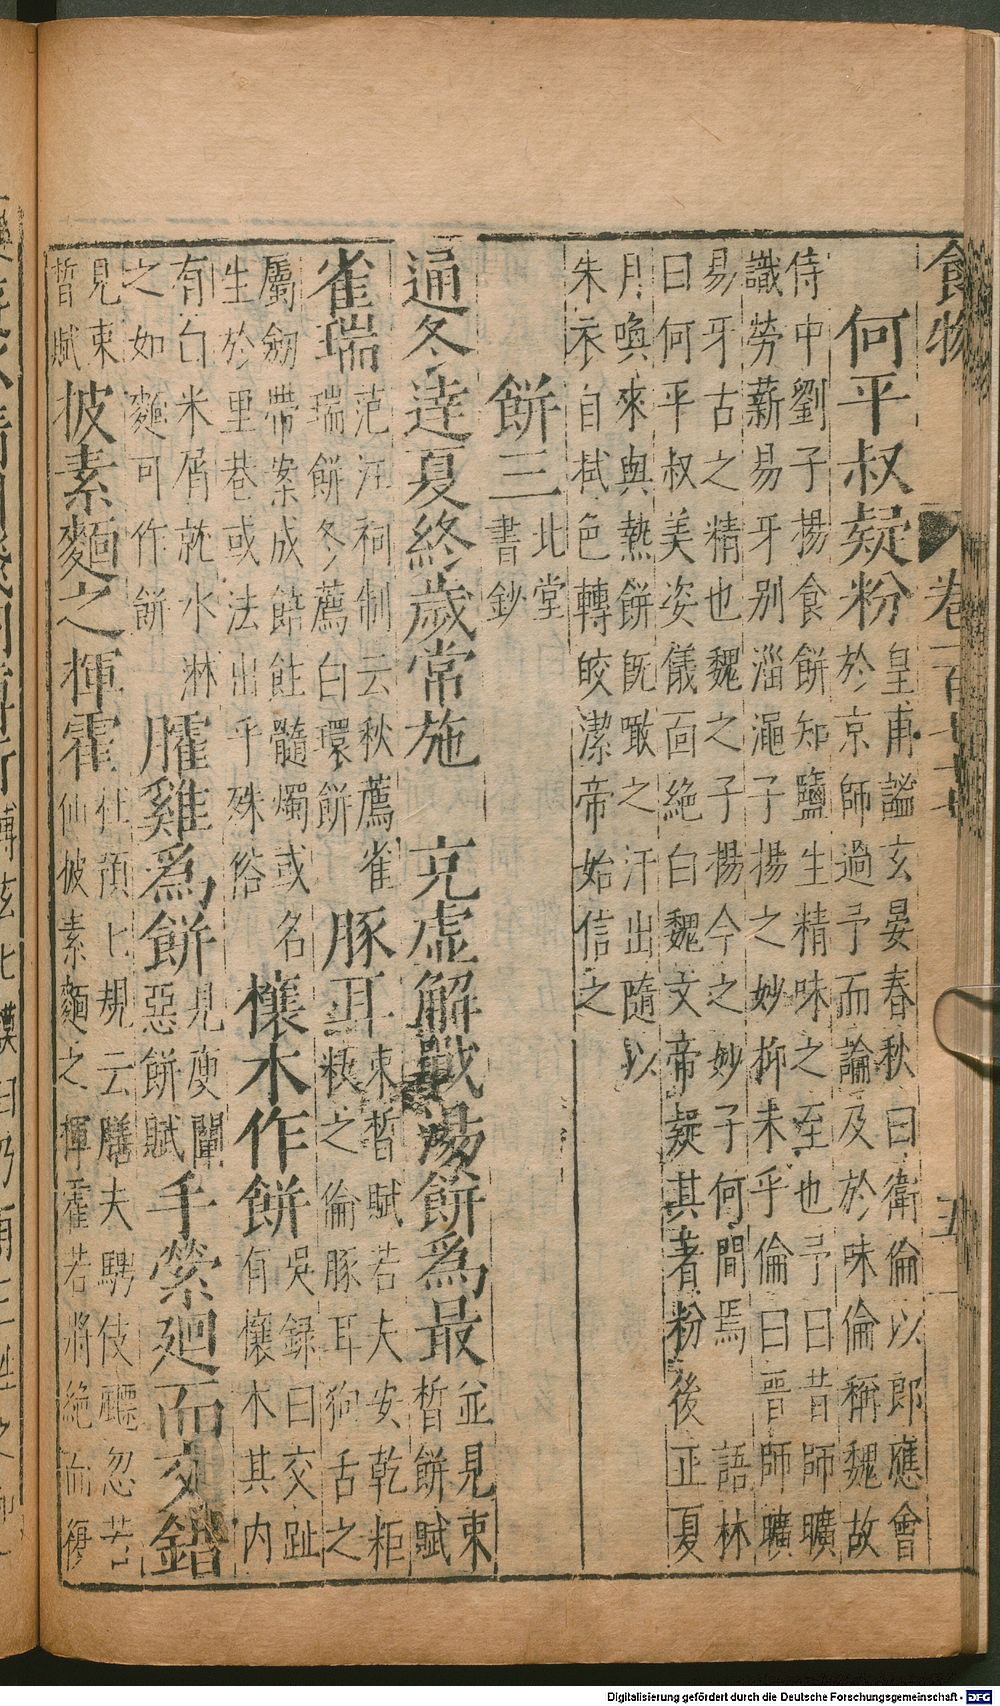 食物 卷一百 五
何平叔疑粉
皇甫謐玄晏春秋曰衛倫以郎應會
於京師過予而論及於味倫稱魏故
侍中劉子楊食餅知鹽生精味之至也予曰昔師曠
識勞薪易牙别淄澠子揚之妙抑未乎倫曰晉師曠
易牙古之精也魏之子楊今之妙子何間焉 語林
曰何平叔美姿儀面絶白魏文帝疑其著粉後正夏
月喚來與熱餅旣噉之汗出隨以
朱衣自拭色轉皎潔帝始信之
餅三 北堂
書鈔
通冬達夏終歲常施 充虚解戰湯餅爲最 並見束
晳餅賦
雀瑞 范汪祠制云秋薦雀
瑞餅冬薦白環餅
豚耳 束晳賦若夫安乾粔
籹之倫豚耳狗舌之
屬劒帶案成餢飳髓燭或名
生於里巷或法出乎殊俗
欀木作餅 吳録曰交趾
有欀木其内
有白米屑就水淋
之如麵可作餅
臛雞爲餅 見庾闡
惡餅賦
手縈廻而交錯
見束
晳賦
披素麵之揮霍 杜預七規云膳夫騁伎忽若
仙披素麵之揮霍若將絶而復
傅玄七謨曰乃
Digitalisierung gefördert durch die Deutsche Forschungsgemeinschaft - DFG